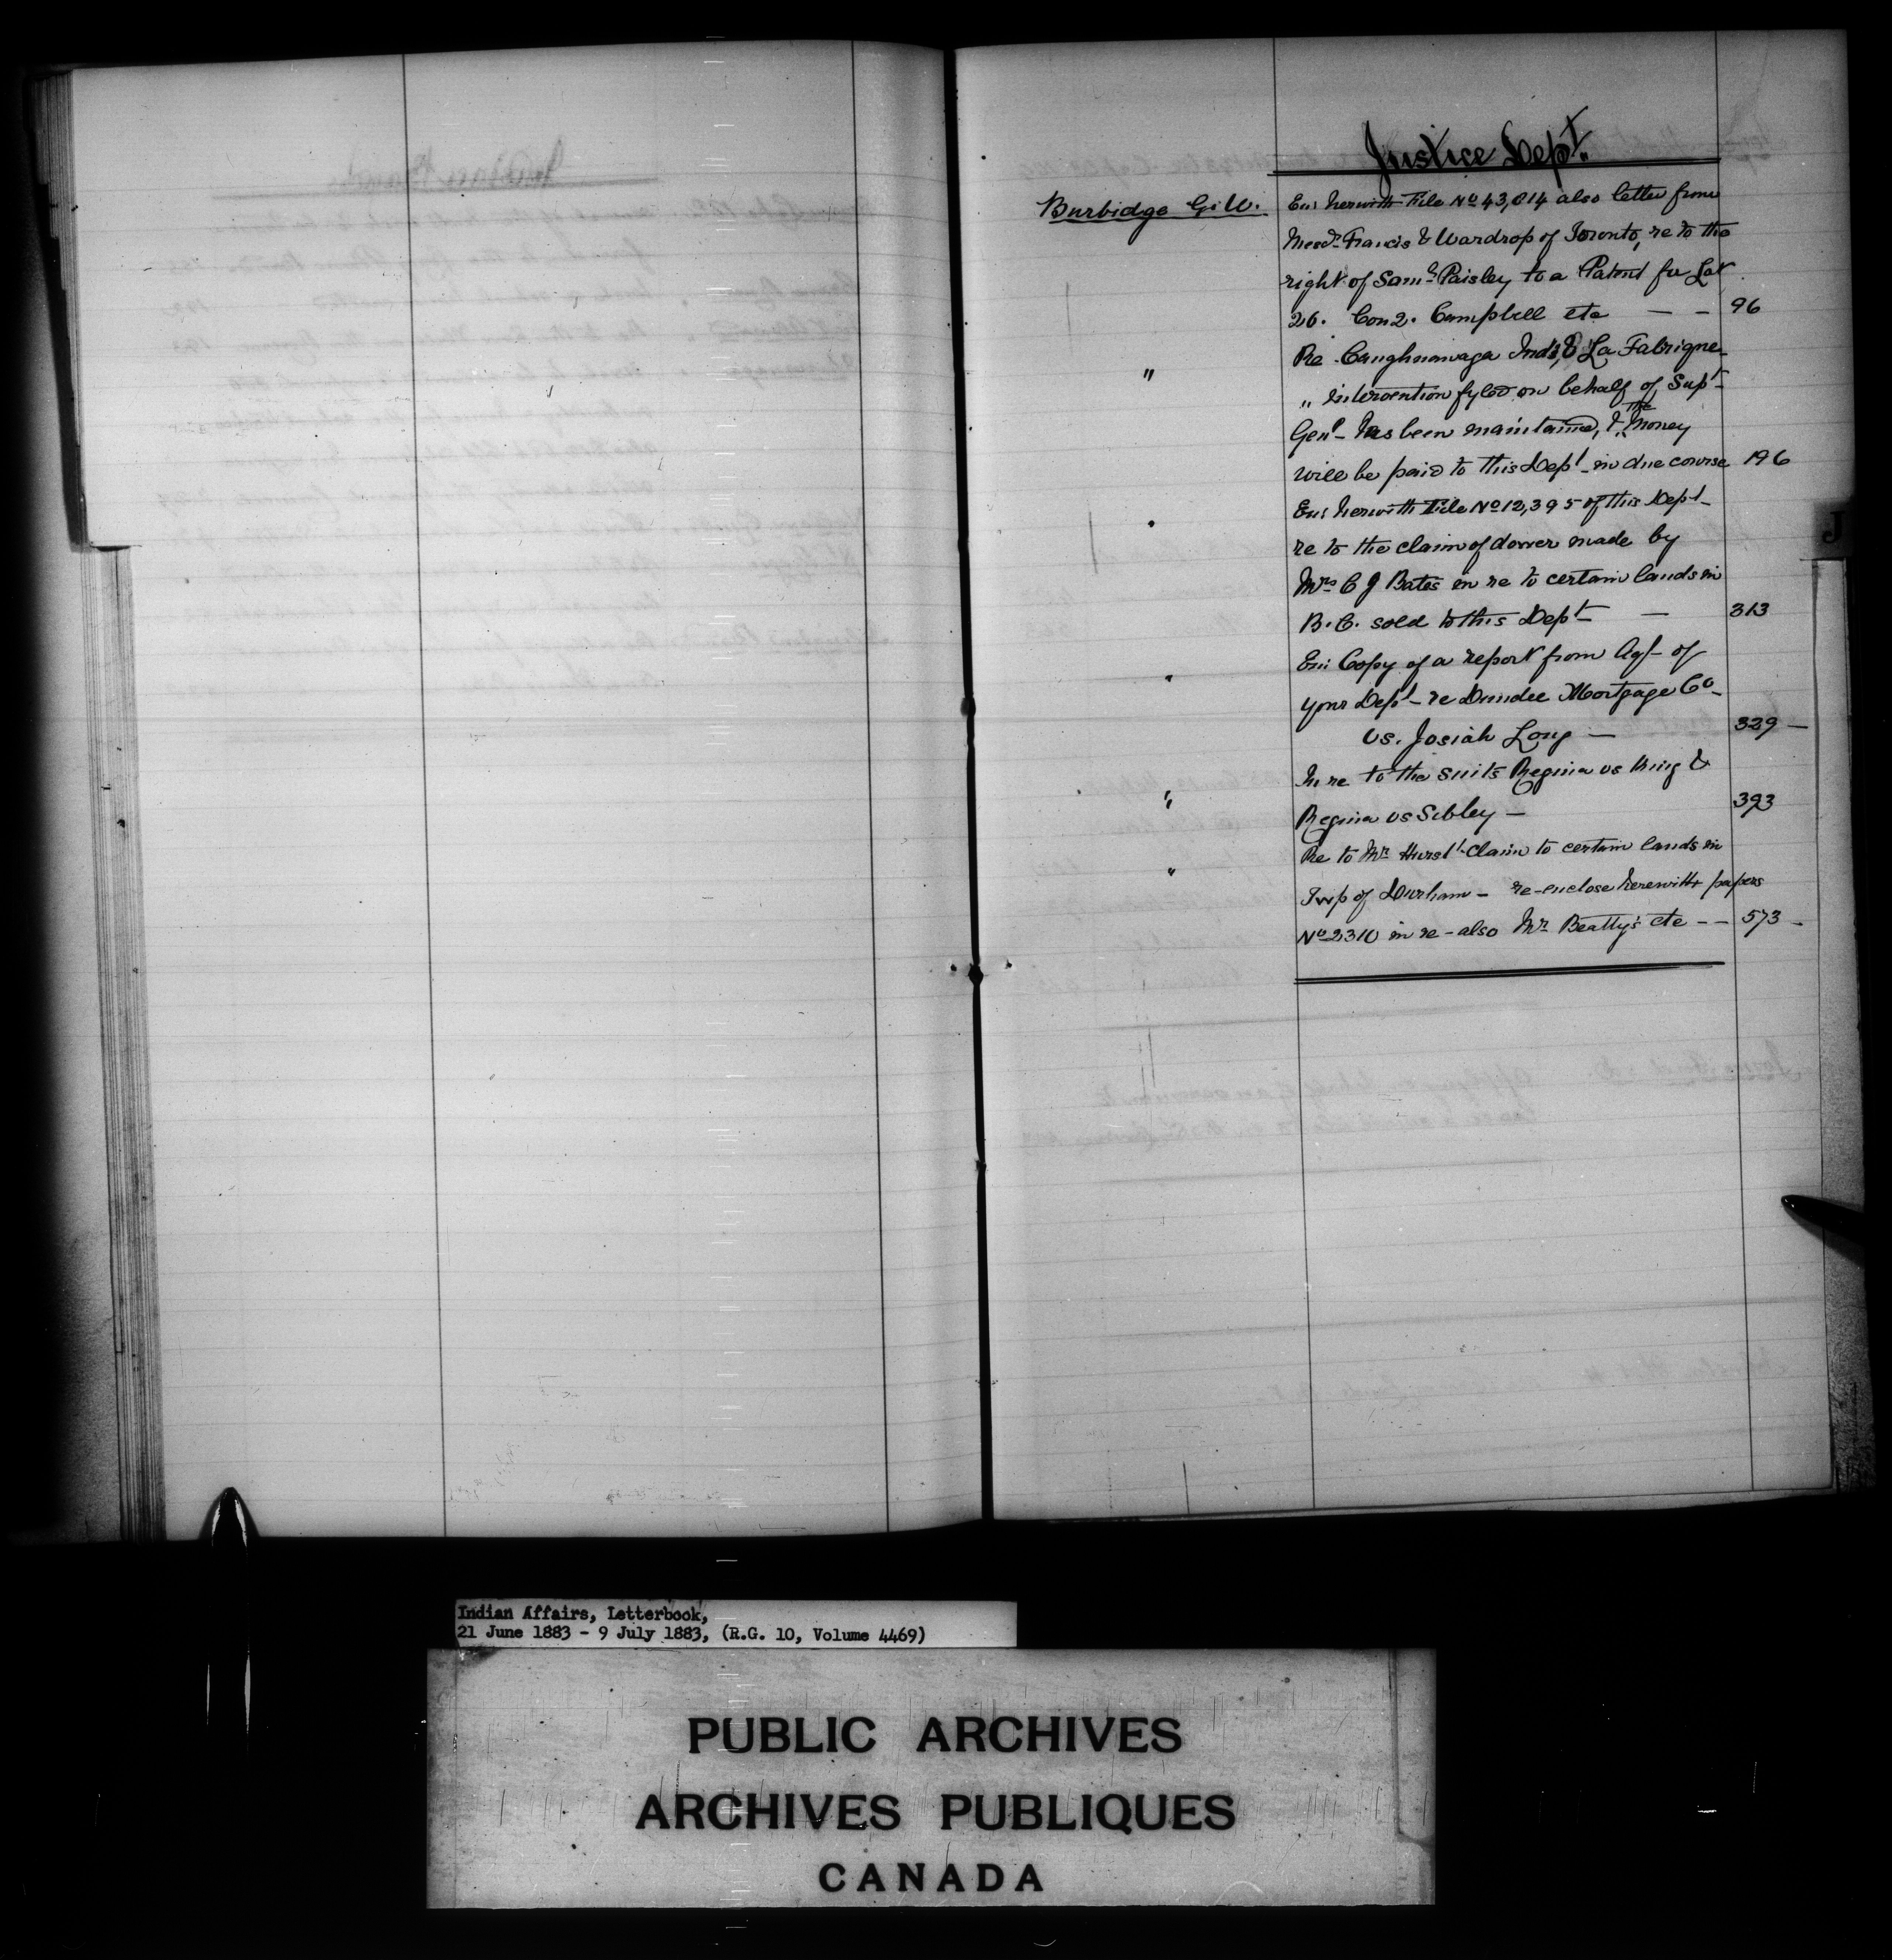 Justice Dept.
Burbidge G. W. Enc herewith File No 43,814 also letter from
Messrs Francis & Wardrop of Toronto, re to the
right of Saml Paisley to a Patent for Lot
26. Con 2. Campbell etc — — 96
" Re Caughnawaga Inds, & La Fabrique
„ intervention fyled on behalf of Supt
Genl has been maintained, & the money
will be paid to this Dept in due course 196
" Enc herewith File No 12,395 of this Dept
re to the claim of dower made by
Mrs C J Bates in re to certain lands in
B.C. sold to this Dept — 313
" Enc Copy of a report from Agt of
your Dept re Dundee Mortgage Co
vs. Josiah Long — 329 —
" In re to the suits Regina vs King &
Regina vs Sibley — 393
" Re to Mr Hurst's claim to certain lands in
Twp of Durham — re-enclose herewith papers
No 2310 in re - also Mr Beatty's etc — — 573 —
J
Indian Affairs, Letterbook,
21 June 1883 - 9 July 1883, (R.G. 10, Volume 4469)
PUBLIC ARCHIVES
ARCHIVES PUBLIQUES
CANADA